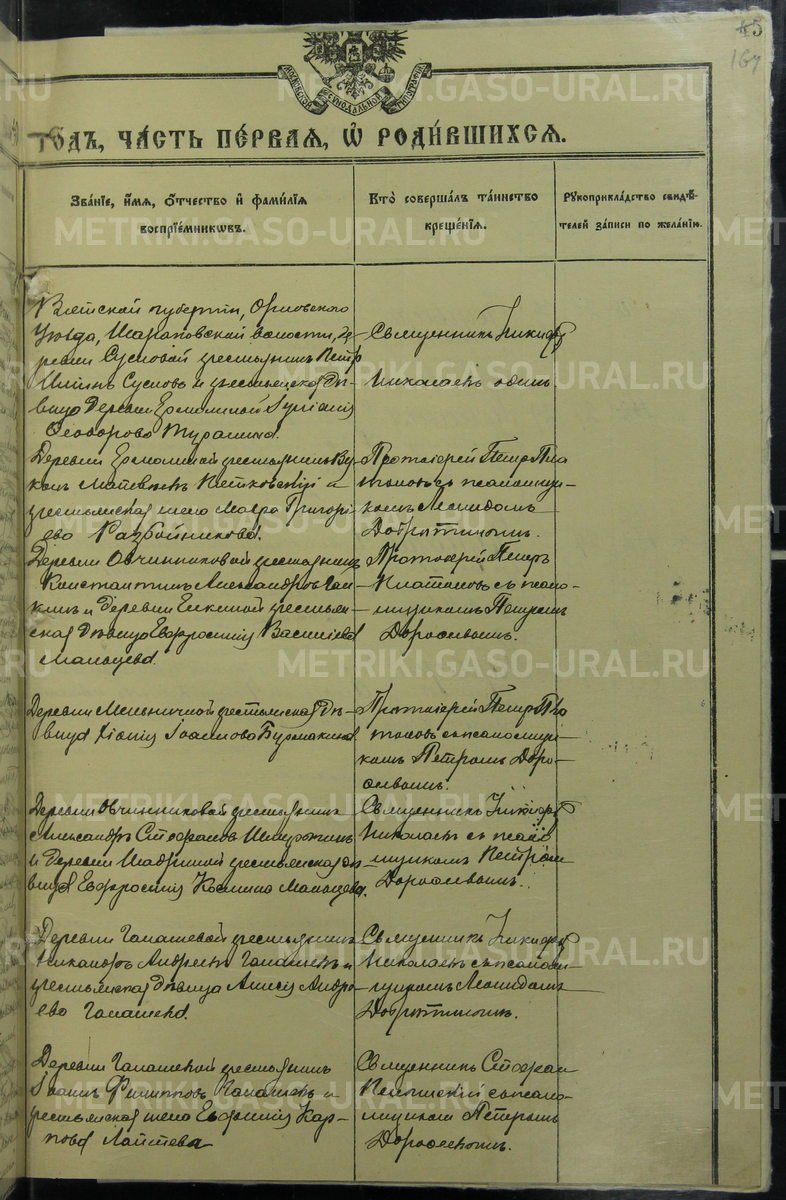 45
167
МОСКОВСКОЙ СѴНОДАЛЬНОЙ ТИПОГРАФІИ
METRIKI.GASO-URAL.RU
годъ, часть первая, ѡ родившихся.
Званіе, имя, отчество и фамилія
воспріемниковъ.
Кто совершалъ таинство
крещенія.
Рукоприкладство свидѣ-
телей записи по желанію.
Вятской губерніи, Орловскаго
Уѣзда, Шараповской волости, де-
ревни Сусловой крестьянинъ Петръ
Ильинъ Сусловъ и крестьянская дѣ-
вица Деревни Ермолиной
Ѳеодорова
Священникъ Никифоръ
Николаевъ одинъ.
Деревни Ермолиной крестьянинъ Ву-
колъ Матвѣевъ и
крестьянская жена Мавра Григорі-
ева Разбойникова.
Протоіерей Петръ Пла-
тоновъ съ псаломщи-
комъ Леонидомъ
Добротинымъ.
Деревни Овчинниковой крестьянинъ
Константинъ Александровъ Гал-
кинъ и Деревни крестьян-
ская дѣвица Евфросинія Василіева
Мальцева.
Протоіерей Петръ
Платоновъ съ псало-
мщикомъ Петромъ
Дорофеевымъ.
Деревни Мельничной крестьянская дѣ-
вица Іоаннова Бурмакина.
Протоіерей Петръ Пла-
тоновъ съ псаломщи-
комъ Петромъ Доро-
феевымъ.
Деревни Овчинниковой крестьянинъ
Александръ Стефановъ
и Деревни Шадриной крестьянская дѣ-
вица Евфросинія Козмина Мальцева.
Священникъ Никифоръ
Николаевъ съ псало-
мщикомъ Петромъ
Дорофеевымъ.
Деревни Галашевой крестьянинъ
Никаноръ Андреевъ Галашевъ и
крестьянская дѣвица Анисія Андре-
ева Галашева.
Священникъ Никифоръ
Николаевъ съ псалом-
щикомъ Леонидомъ
Добротинымъ.
Деревни Галашевой крестьянинъ
Іоаннъ Филипповъ Галашевъ и
крестьянская жена Евфимія Кар-
пова Лаптева
Священникъ Стефанъ
съ псало-
мщикомъ Петромъ
Дорофеевымъ.